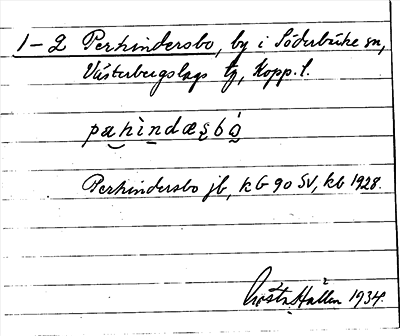 1–2 Perhindersbo, by i Söderbärke sn,
Västerbergslags tg, Kopp. l.
pæhìndæsbó
Perhindersbo jb, kb 90 SV, kb 1928.
Gösta Hallén 1934.